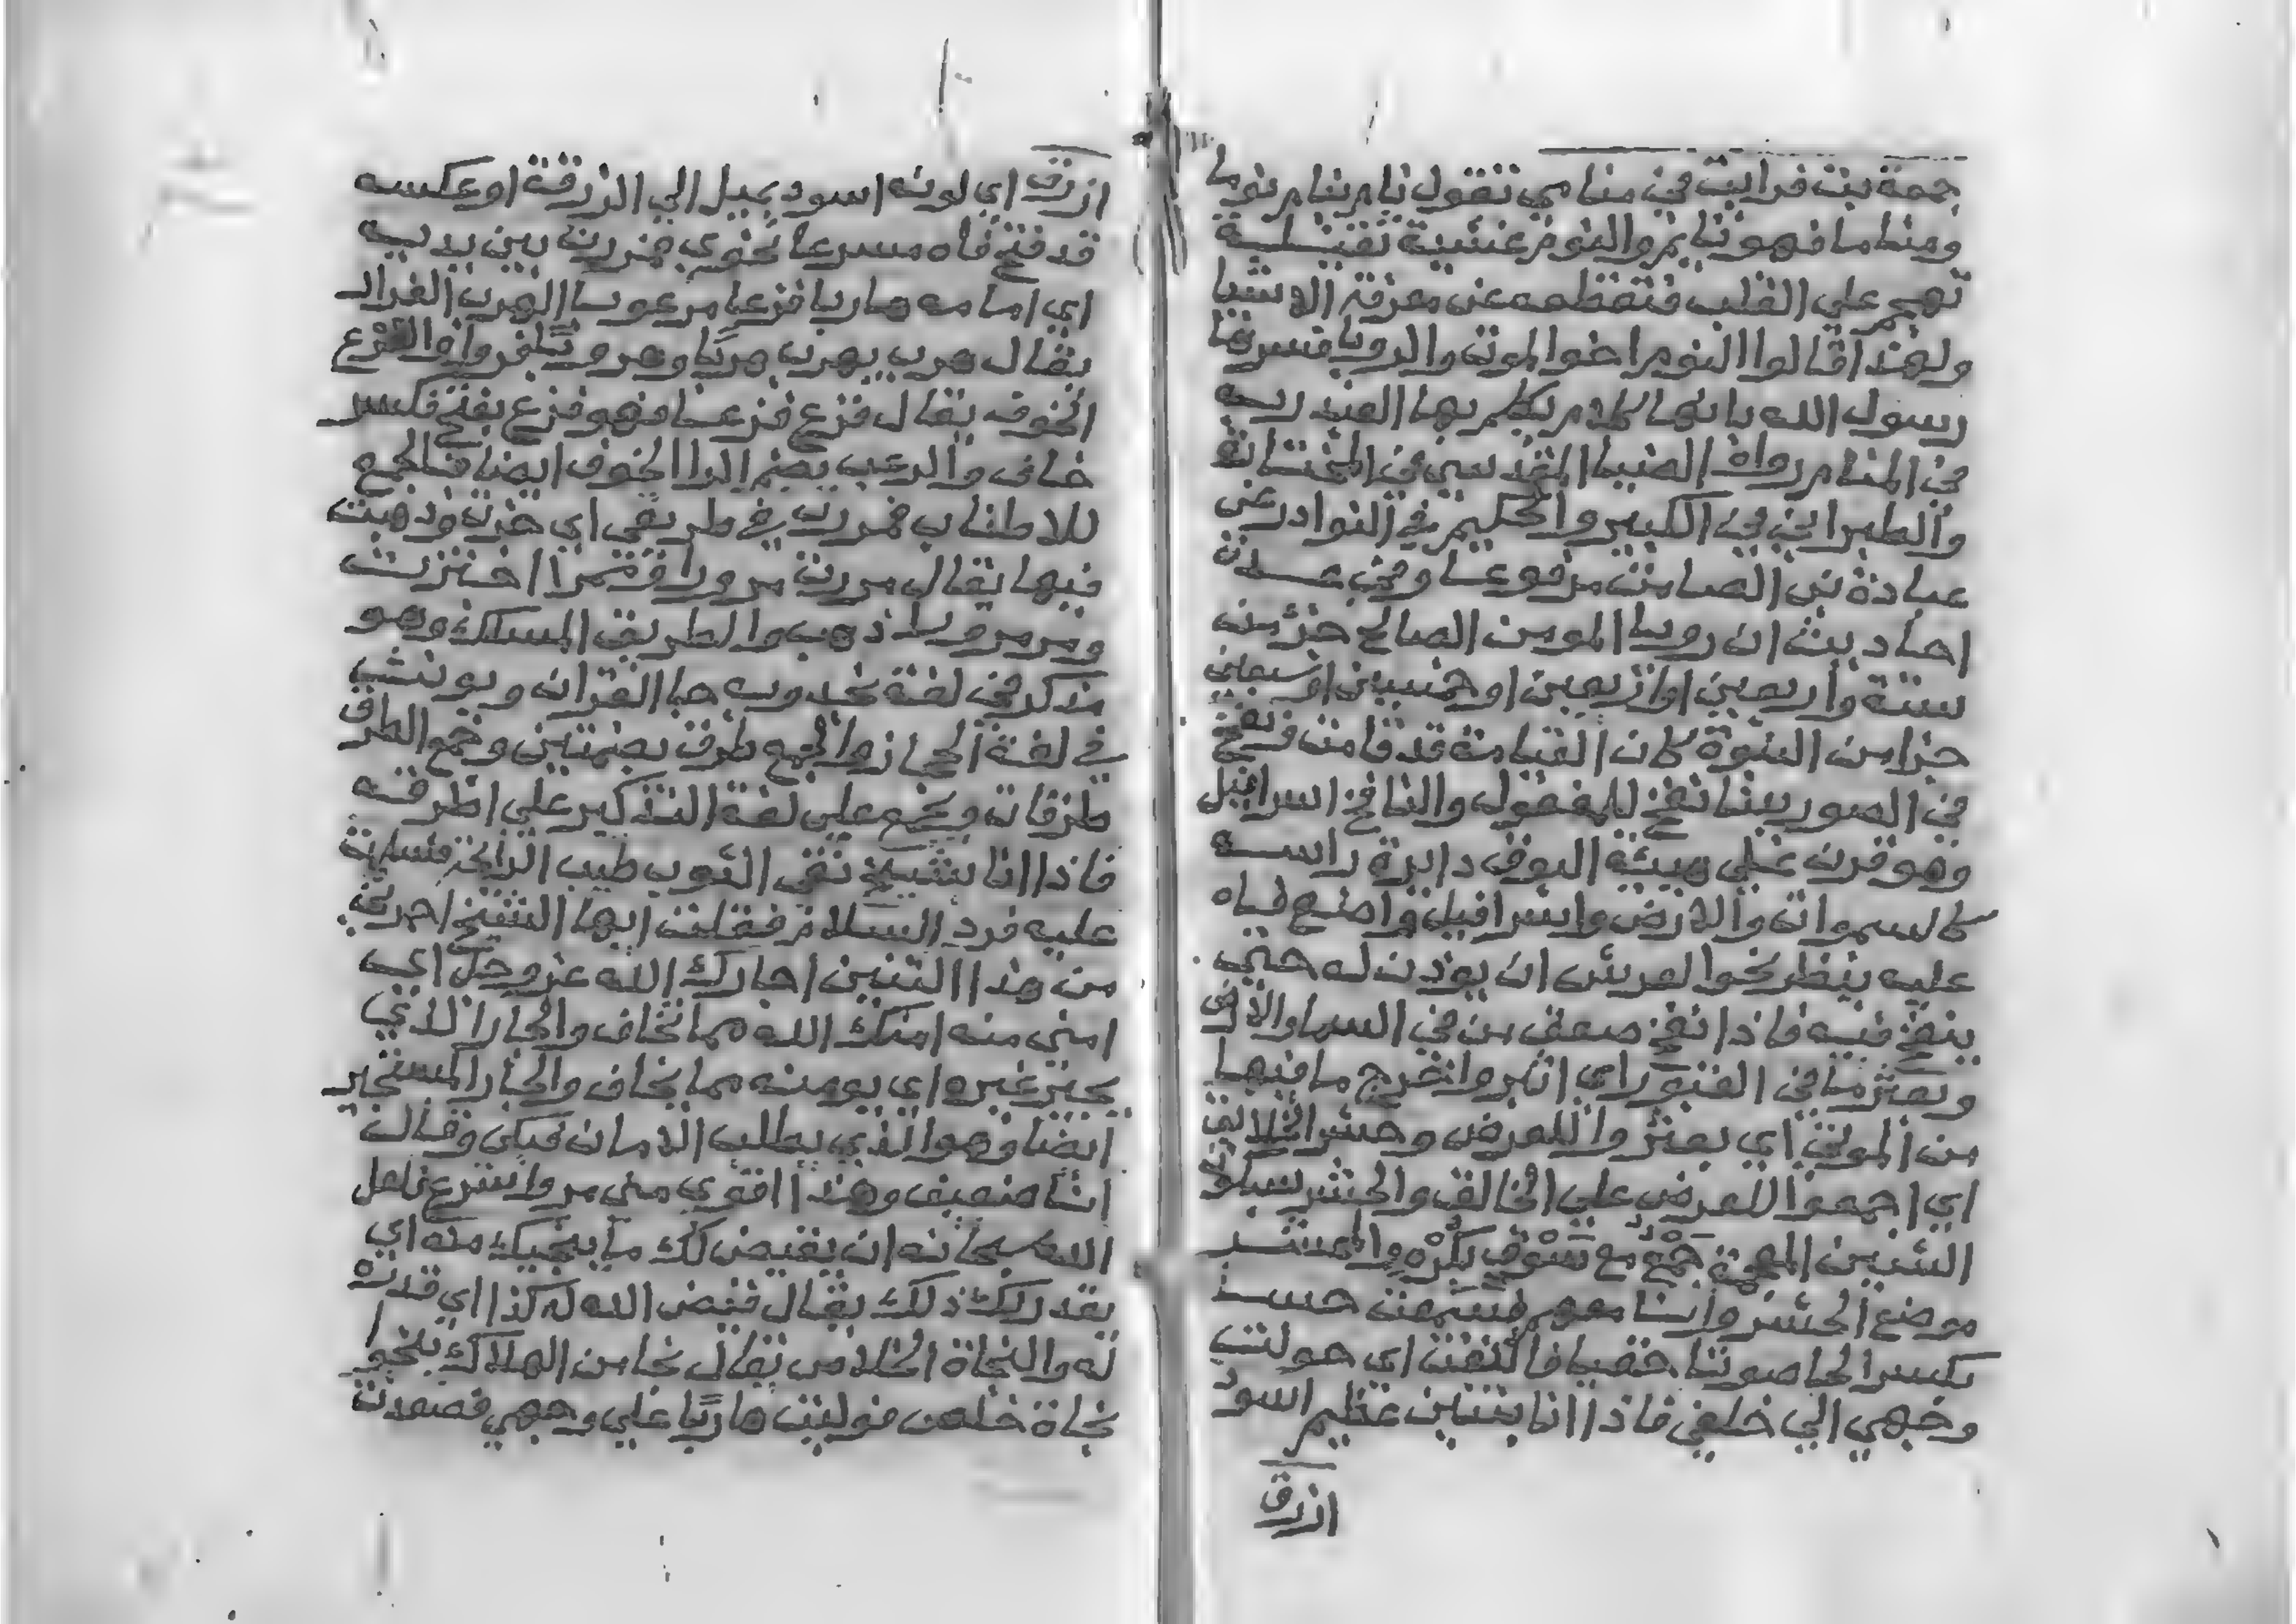 جمعة بت فرايت في منامي تقول نام ينام نوما
ومناما فهو نايم والنوم غشية ثقيلة
تهجم علي القلب فتقطعه عن معرفة الاشيا
ولهذا قالوا النوم اخوا الموت والرويا فسرها
رسول الله بانها كلام يكلم بها العبد ربه
في المنام رواه الضيا المقدسي في المختارة
والطبراني في الكبير والحكيم في النوادر عن
عبادة بن الصامت مرفوعا وفي عدة
احاديث ان رويا المومن الصالح جزٔ من
ستة واربعين او اربعين او خمسين او سبعين
جزا من النبوة كان القيامة قد قامت ونفخ
في الصور بينا نفخ للمفعول والنافخ اسرافيل
وهو قرن علي هيئة البوق دايرة راسه
كالسموات والارض واسرافيل واضع فاه
عليه ينظر نحوا لعرش ان يوذن له حتي
ينفخ فيه فاذا نفخ صعق من في السما والارض
وبعثر ما في القبور اي اثير واخرج ما فيها
من الموتي اي بعثروا للعرض وحشر الخلايق
اي اجمعوا للعرض علي الخالق والحشر بسكون
الشين المعجمة جمع مع سوق بكره والمحشر
موضع الحشر وانا معهم فسمعت حسا
بكسر الحا صوتا خفيا فالتفت اي حولت
وجهي الي خلفي فاذا انا بتنين عظيم اسود
ازرق
ازرق اي لونه اسود يميل الي الزرقة او عكسه
قد فتح فاه مسرعا نحوي فمررت بين يديه
اي امامه هاربا فزعا مرعوبا الهرب الفرار
يقال هرب يهرب هربا وهروبا فر والفزع
الخوف يقال فزع فزعا فهو فزع بفتح فكسر
خاف والرعب بضم الرا الخوف ايضا فالجمع
للاطناب فمررت في طريقي اي جزت وذهبت
فيها يقال مررت مرورا وممرا اجتزت
ومر مرورا ذهب والطريق المسلك وهو
مذكر في لغة نجد وبه جا القران ويونث
في لغة الحجاز والجمع طرق بضمتين وجمع الطرق
طرقات ويجمع علي لغة التذكير علي اطرقه
فاذا انا بشيخ نقي الثوب طيب الرايحة فسلمت
عليه فرد السلام فقلت ايها الشيخ اجرني
من هذا التنين اجارك الله عز وجل اي
امني منه امنك الله مما تخاف والجار الذي
يجير غيره اي يومنه مما يخاف والجار المستجير
ايضا وهوا الذي يطلب الامان فبكي وقال
انا ضعيف وهذا اقوي مني مر واسرع فلعل
الله سبحانه ان يقيض لك ما ينجيك منه اي
يقدر لك ذلك يقال قيض الله له كذا اي قدره
له والنجاة الخلاص يقال نجا من الهلاك ينجوا
نجاة خلص فوليت هاربا علي وجهي فصعدت